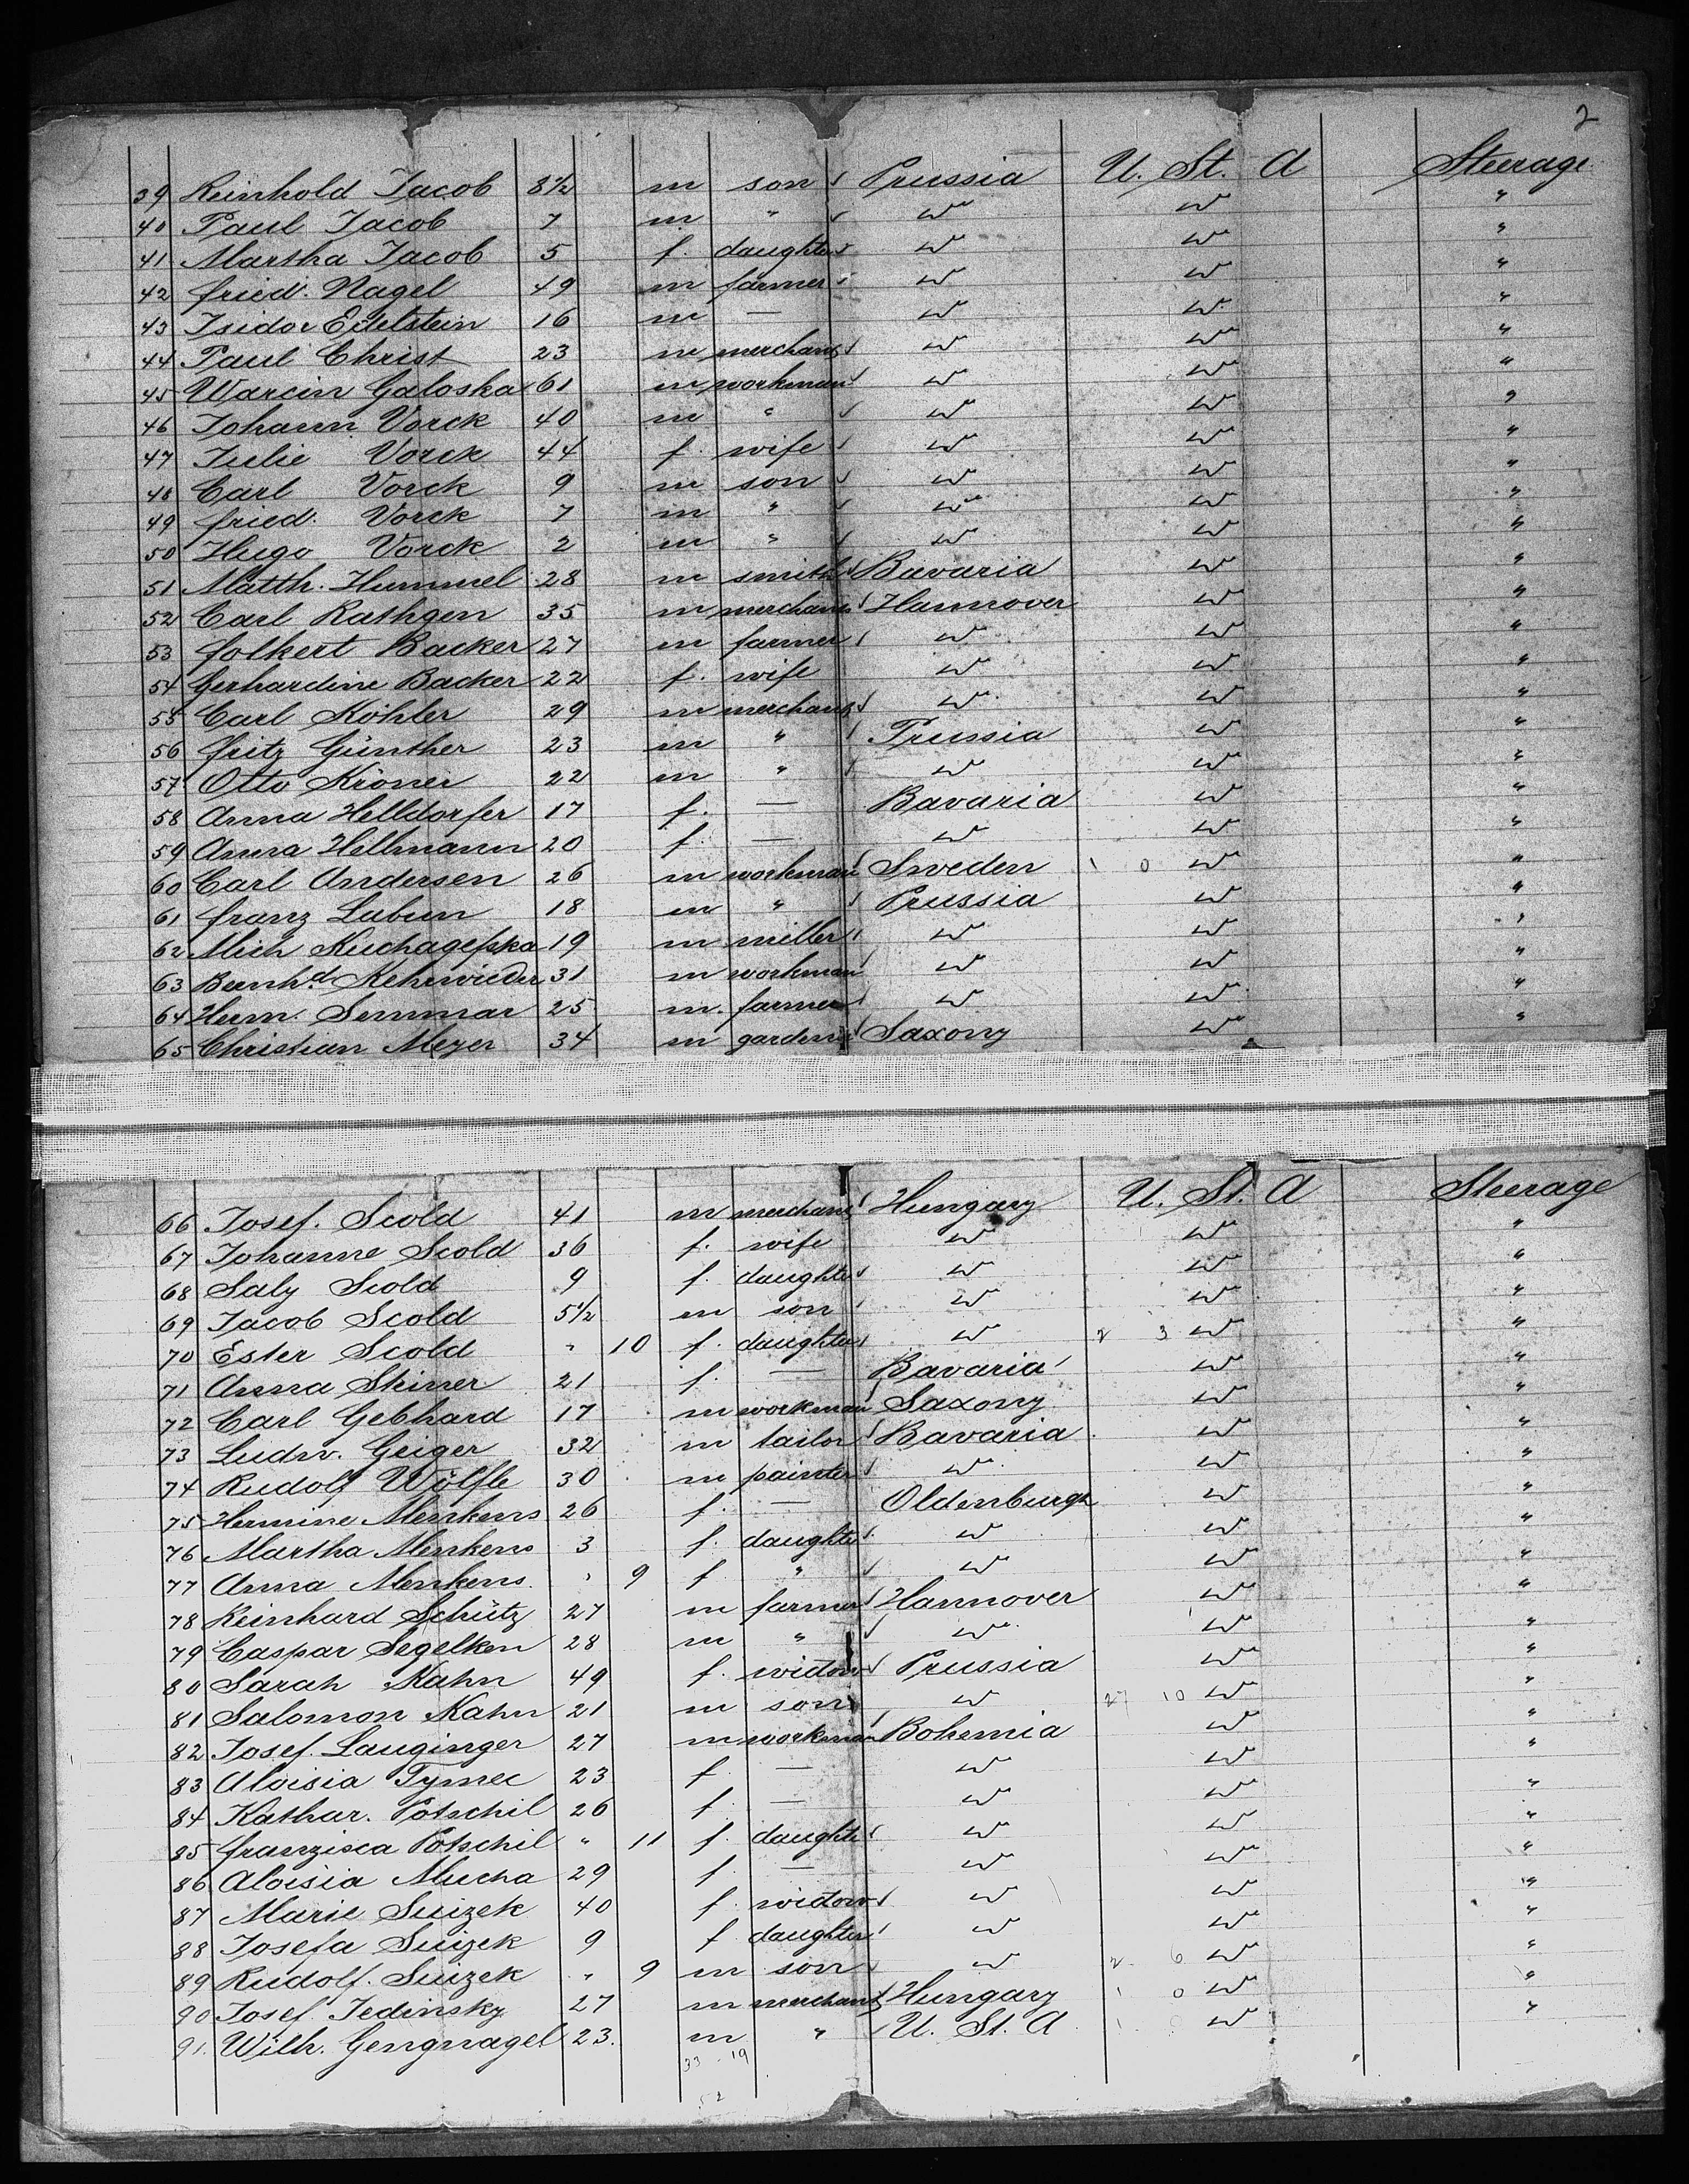 2
39 Reinhold Jacob 8 1/2 m son Prussia U. St. A Steerage
40 Paul Jacob 7 m " " " "
41 Martha Jacob 5 f. daughter " " "
42 Fried. Nagel 49 m farmer " " "
43 Isidor Edelstein 16 m — " " "
44 Paul Christ 23 m merchant " " "
45 Warcin Galoska 61 m workman " " "
46 Johann Vorck 40 m " " " "
47 Julie Vorck 44 f. wife " " "
48 Carl Vorck 9 m son " " "
49 Fried. Vorck 7 m " " " "
50 Hugo Vorck 2 m " " " "
51 Matth. Hummel 28 m smith Bavaria " "
52 Carl Rathgen 35 m merchant Hannover " "
53 Folkert Backer 27 m farmer " " "
54 Gerhardine Backer 22 f. wife " " "
55 Carl Köhler 29 m merchant " " "
56 Fritz Günther 23 m " Prussia " "
57 Otto Kröner 22 m " " " "
58 Anna Helldorfer 17 f. — Bavaria " "
59 Anna Hellmann 20 f. — " " "
60 Carl Andersen 26 m workman Sweden 1 0 " "
61 Franz Labun 18 m " Prussia " "
62 Mich 19 m miller " " "
63 Bernhd Kehrwieder 31 m workman " " "
64 Herm. Semmar 25 m. farmer " " "
65 Christian Meyer 34 m gardener Saxony " "
66 Josef. Scold 41 m merchant Hungary U. St. A Steerage
67 Johanne Scold 36 f. wife " " "
68 Saly Scold 9 f. daughter " " "
69 Jacob Scold 5 1/2 m son " " "
70 Ester Scold " 10 f. daughter " 2 3 " "
71 Anna Skiner 21 f. — Bavaria " "
72 Carl Gebhard 17 m workman Saxony " "
73 Ludw. Geiger 32 m tailor Bavaria " "
74 Rudolf Wölfle 30 m painter " " "
75 Hermine Menkens 26 f. — Oldenburg " "
76 Martha Menkens 3 f. daughter " " "
77 Anna Menkens " 9 f " " " "
78 Reinhard Schütz 27 m farmer Hannover " "
79 Caspar Segelken 28 m " " " "
80 Sarah Kahn 49 f. widow Prussia " "
81 Salomon Kahn 21 m son " 27 10 " "
82 Josef. Lauginger 27 m workman Bohemia " "
83 Aloisia Tymec 23 f — " " "
84 Kathar. Potschil 26 f. — " " "
85 Franzisca Potschil " 11 f. daughter " " "
86 Aloisia Mucha 29 f. — " " "
87 Marie Suizek 40 f. widow " " "
88 Josefa Suizek 9 f daughter " " "
89 Rudolf. Suizek " 9 m son " 2 6 " "
90 Josef. Jedinsky 27 m merchant Hungary 1 0 " "
91. Wilh. Gengnagel 23. m " U. St. A " "
33 - 19
52